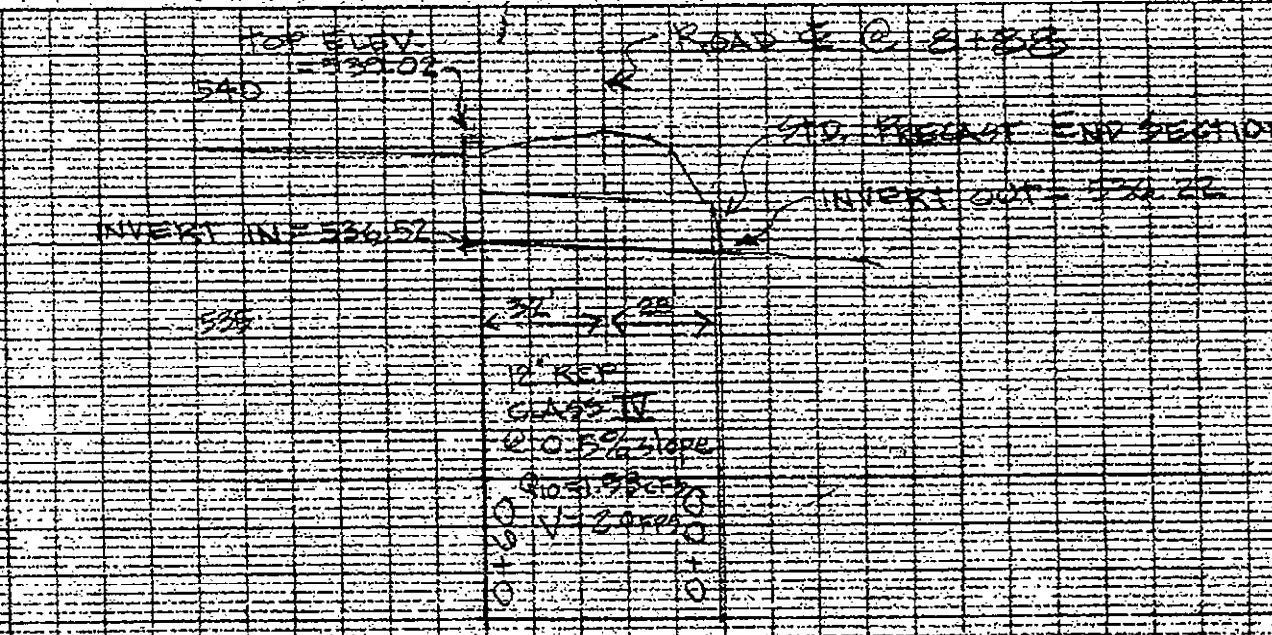 TOP ELEV.
= 539.02
ROAD ℄ @ 8+88
540
STD. PRECAST END SECTION
INVERT OUT = 536.22
INVERT IN = 536.52
535
32' 28'
12" RCP
CLASS IV
@ 0.5% slope
Q10=1.58cfs
V=2.0fps
0+60
0+00